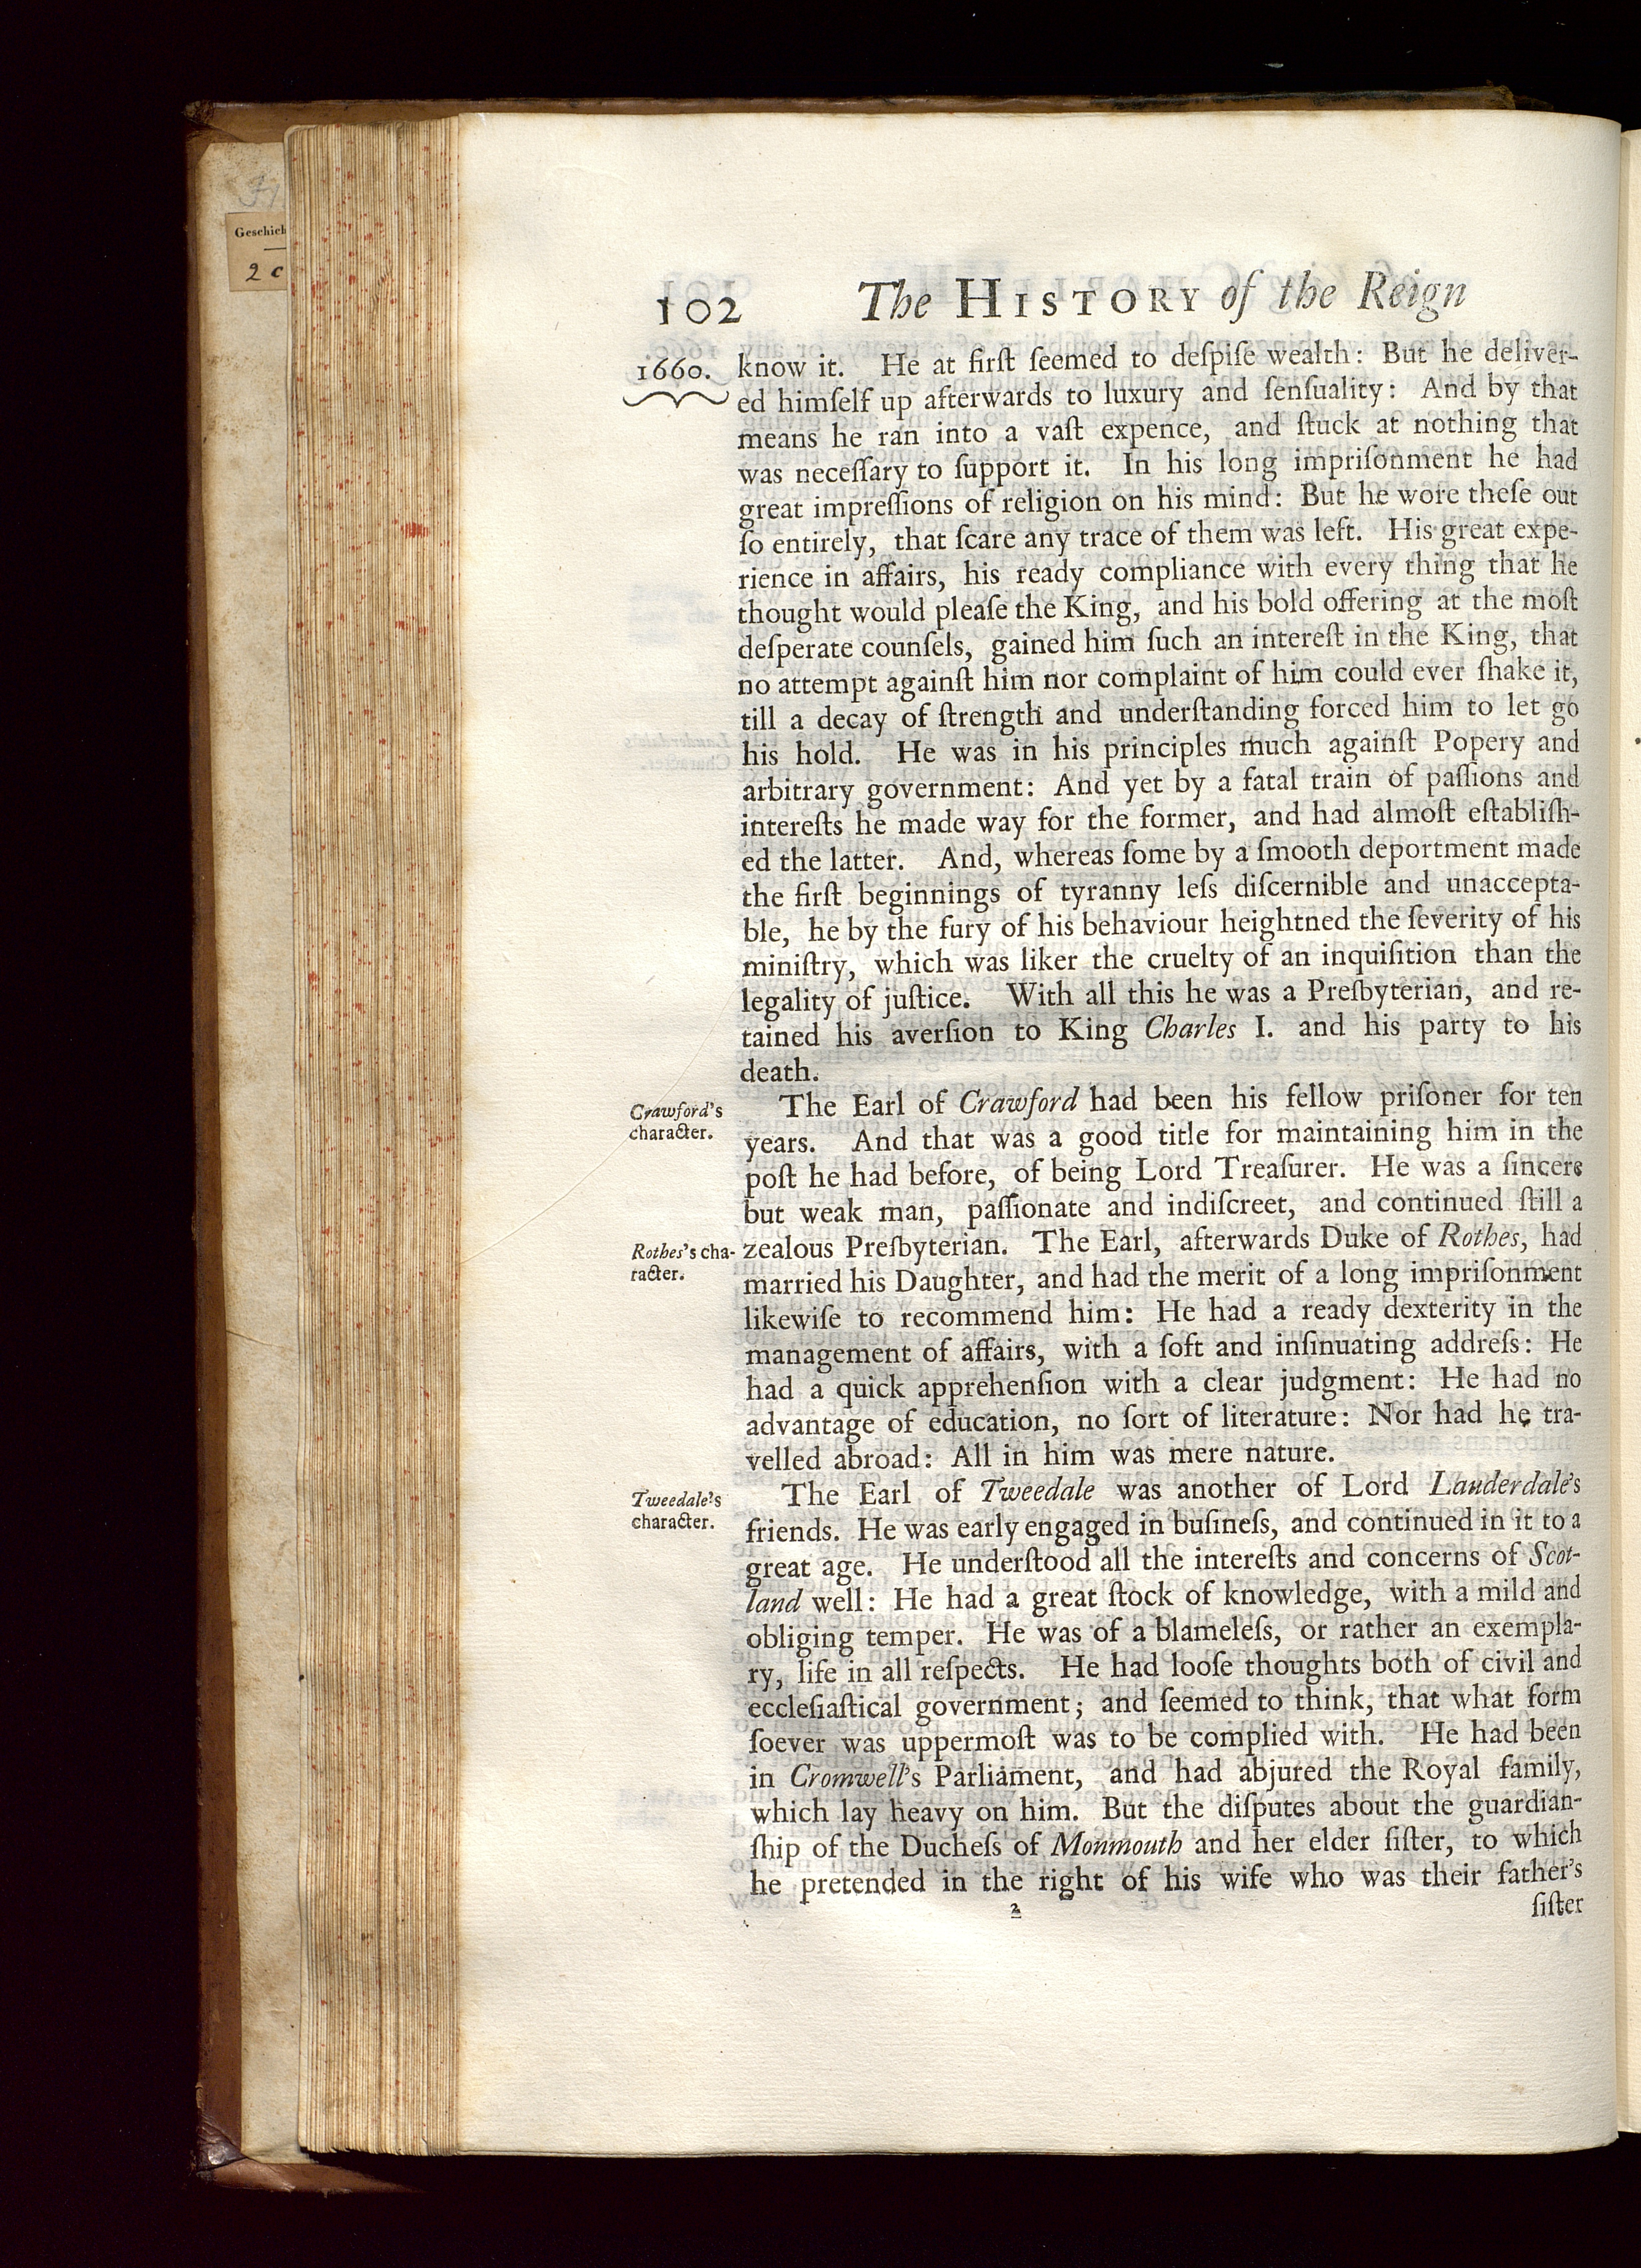 Geschich
2 c
102 The HISTORY of the Reign
1660.
know it. He at firſt ſeemed to deſpiſe wealth: But he deliver-
ed himſelf up afterwards to luxury and ſenſuality: And by that
means he ran into a vaſt expence, and ſtuck at nothing that
was neceſſary to ſupport it. In his long impriſonment he had
great impreſſions of religion on his mind: But he wore theſe out
ſo entirely, that ſcare any trace of them was left. His great expe-
rience in affairs, his ready compliance with every thing that he
thought would pleaſe the King, and his bold offering at the moſt
deſperate counſels, gained him ſuch an intereſt in the King, that
no attempt againſt him nor complaint of him could ever ſhake it,
till a decay of ſtrength and underſtanding forced him to let go
his hold. He was in his principles much againſt Popery and
arbitrary government: And yet by a fatal train of paſſions and
intereſts he made way for the former, and had almoſt eſtabliſh-
ed the latter. And, whereas ſome by a ſmooth deportment made
the firſt beginnings of tyranny leſs diſcernible and unaccepta-
ble, he by the fury of his behaviour heightned the ſeverity of his
miniſtry, which was liker the cruelty of an inquiſition than the
legality of juſtice. With all this he was a Preſbyterian, and re-
tained his averſion to King Charles I. and his party to his
death.
Crawford's
character.
The Earl of Crawford had been his fellow priſoner for ten
years. And that was a good title for maintaining him in the
poſt he had before, of being Lord Treaſurer. He was a ſincere
but weak man, paſſionate and indiſcreet, and continued ſtill a
Rothes's cha-
racter.
zealous Preſbyterian. The Earl, afterwards Duke of Rothes, had
married his Daughter, and had the merit of a long impriſonment
likewiſe to recommend him: He had a ready dexterity in the
management of affairs, with a ſoft and inſinuating addreſs: He
had a quick apprehenſion with a clear judgment: He had no
advantage of education, no ſort of literature: Nor had he tra-
velled abroad: All in him was mere nature.
Tweedale's
character.
The Earl of Tweedale was another of Lord Lauderdale's
friends. He was early engaged in buſineſs, and continued in it to a
great age. He underſtood all the intereſts and concerns of Scot-
land well: He had a great ſtock of knowledge, with a mild and
obliging temper. He was of a blameleſs, or rather an exempla-
ry, life in all reſpects. He had looſe thoughts both of civil and
eccleſiaſtical government; and ſeemed to think, that what form
ſoever was uppermoſt was to be complied with. He had been
in Cromwell's Parliament, and had abjured the Royal family,
which lay heavy on him. But the diſputes about the guardian-
ſhip of the Ducheſs of Monmouth and her elder ſiſter, to which
he pretended in the right of his wife who was their father's
2 ſiſter